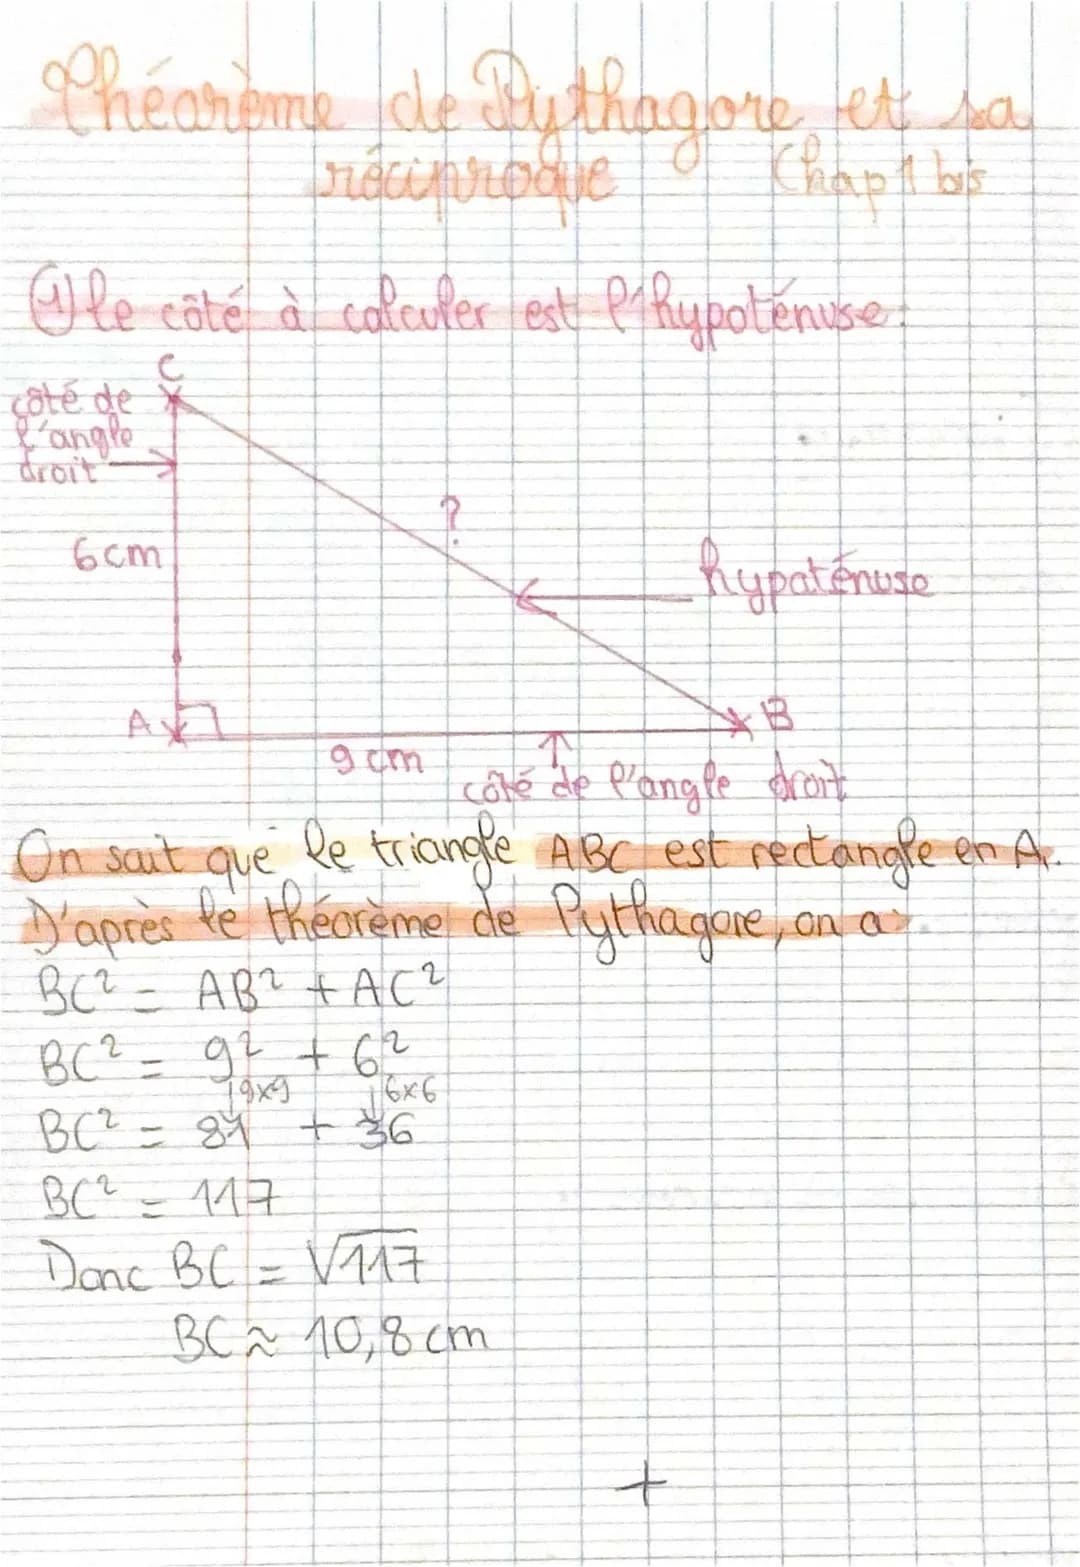 Théorème de Pythagore et sa
réciproque Chap 1 bis
① le côté à calculer est l'hypoténuse.
C
côté de
l'angle
droit
?
6cm
hypoténuse
A
B
9 cm
côté de l'angle droit
On sait que le triangle ABC est rectangle en A.
D'après le théorème de Pythagore, on a:
BC² = AB² + AC²
BC² = 9² + 6²
9×9 6×6
BC² = 81 + 36
BC² = 117
Donc BC = √117
BC ≈ 10,8 cm
+